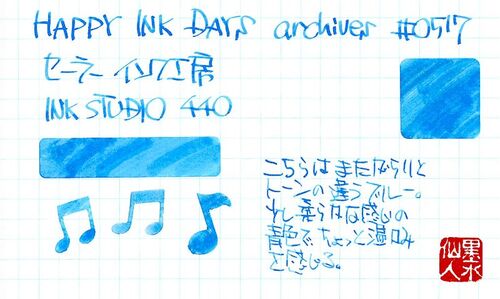 HAPPY INK DAYS archives #0517
セーラー インク工房
INK STUDIO 440
こちらはまたがらりと
トーンの違うブルー。
少し柔らかな感じの
青色でちょっと温かみ
を感じる。
墨水
仙人